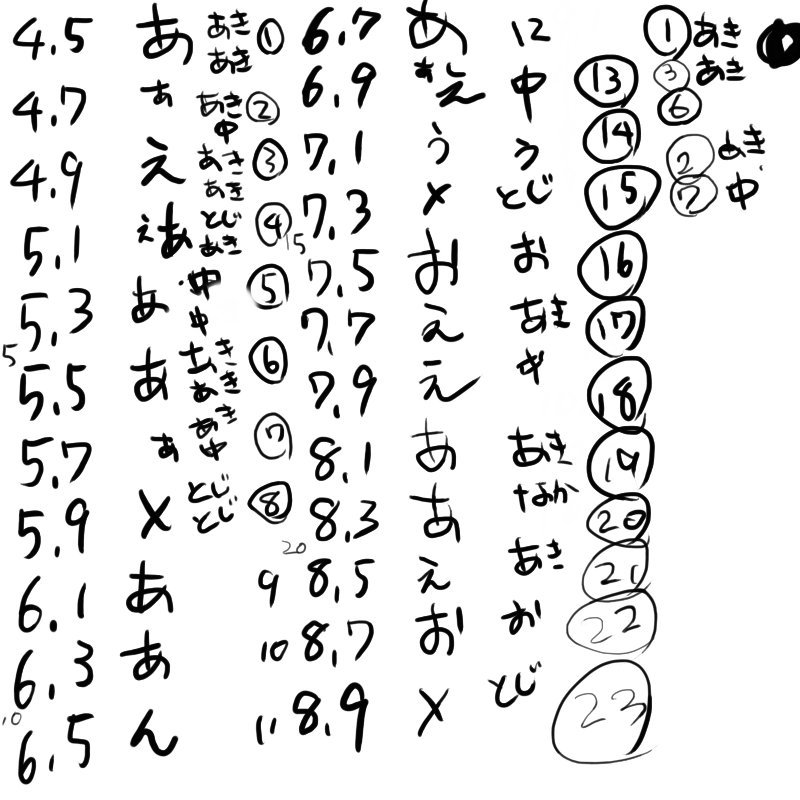 4.5 あ あき ① 6.7 あ に ① あき
あき
4.7 ぁ あき ② 6.9 ぁえ 中 ⑬ ③ あき
中 ⑥
4.9 え あき ③ 7.1 う う ⑭ ② あき
あき ⑦ 中
5.1 ぇあ とじ ④ 7.3 × とじ ⑮
あき 15
5.3 あ 中 ⑤ 7.5 お お ⑯
中
5 7.7 え あき ⑰
5.5 あ あき ⑥ 7.9 え ⑱
あき
5.7 ぁ あき ⑦ 8.1 あ あき ⑲
中
5.9 × とじ ⑧ 8.3 あ なか ⑳
とじ 20
6.1 あ 9 8.5 え あき ㉑
6.3 あ 10 8.7 お お ㉒
10
6.5 ん 11 8.9 × とじ ㉓